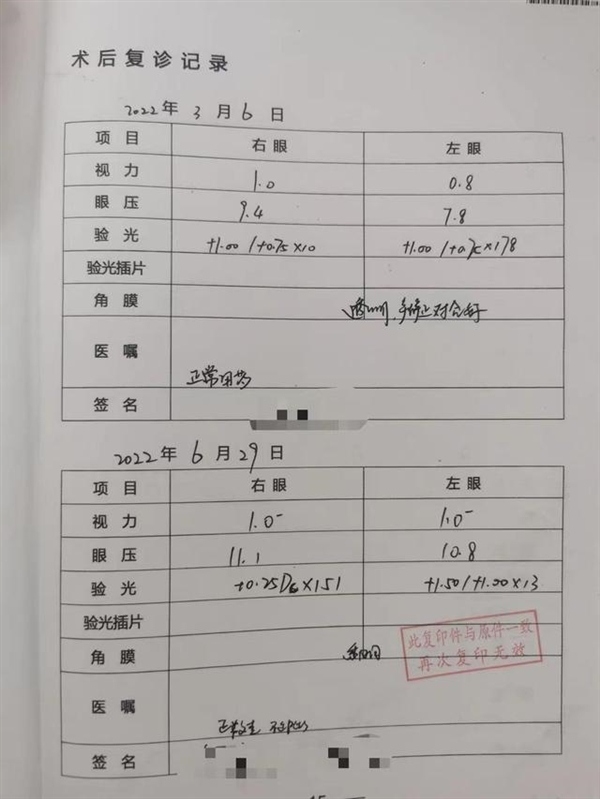 术后复诊记录
2022年 3月6日
项目 右眼 左眼
视力 1.0 0.8
眼压 9.4 7.8
验光 +1.00/+0.75×10 +1.00/+0.75×178
验光插片
角膜 透明,对合好
医嘱 正常用药
签名
2022年 6月29日
项目 右眼 左眼
视力 1.0⁻ 1.0⁻
眼压 11.1 10.8
验光 +0.25Dc×151 +1.50/+1.00×13
验光插片
此复印件与原件一致
再次复印无效
角膜
医嘱
签名